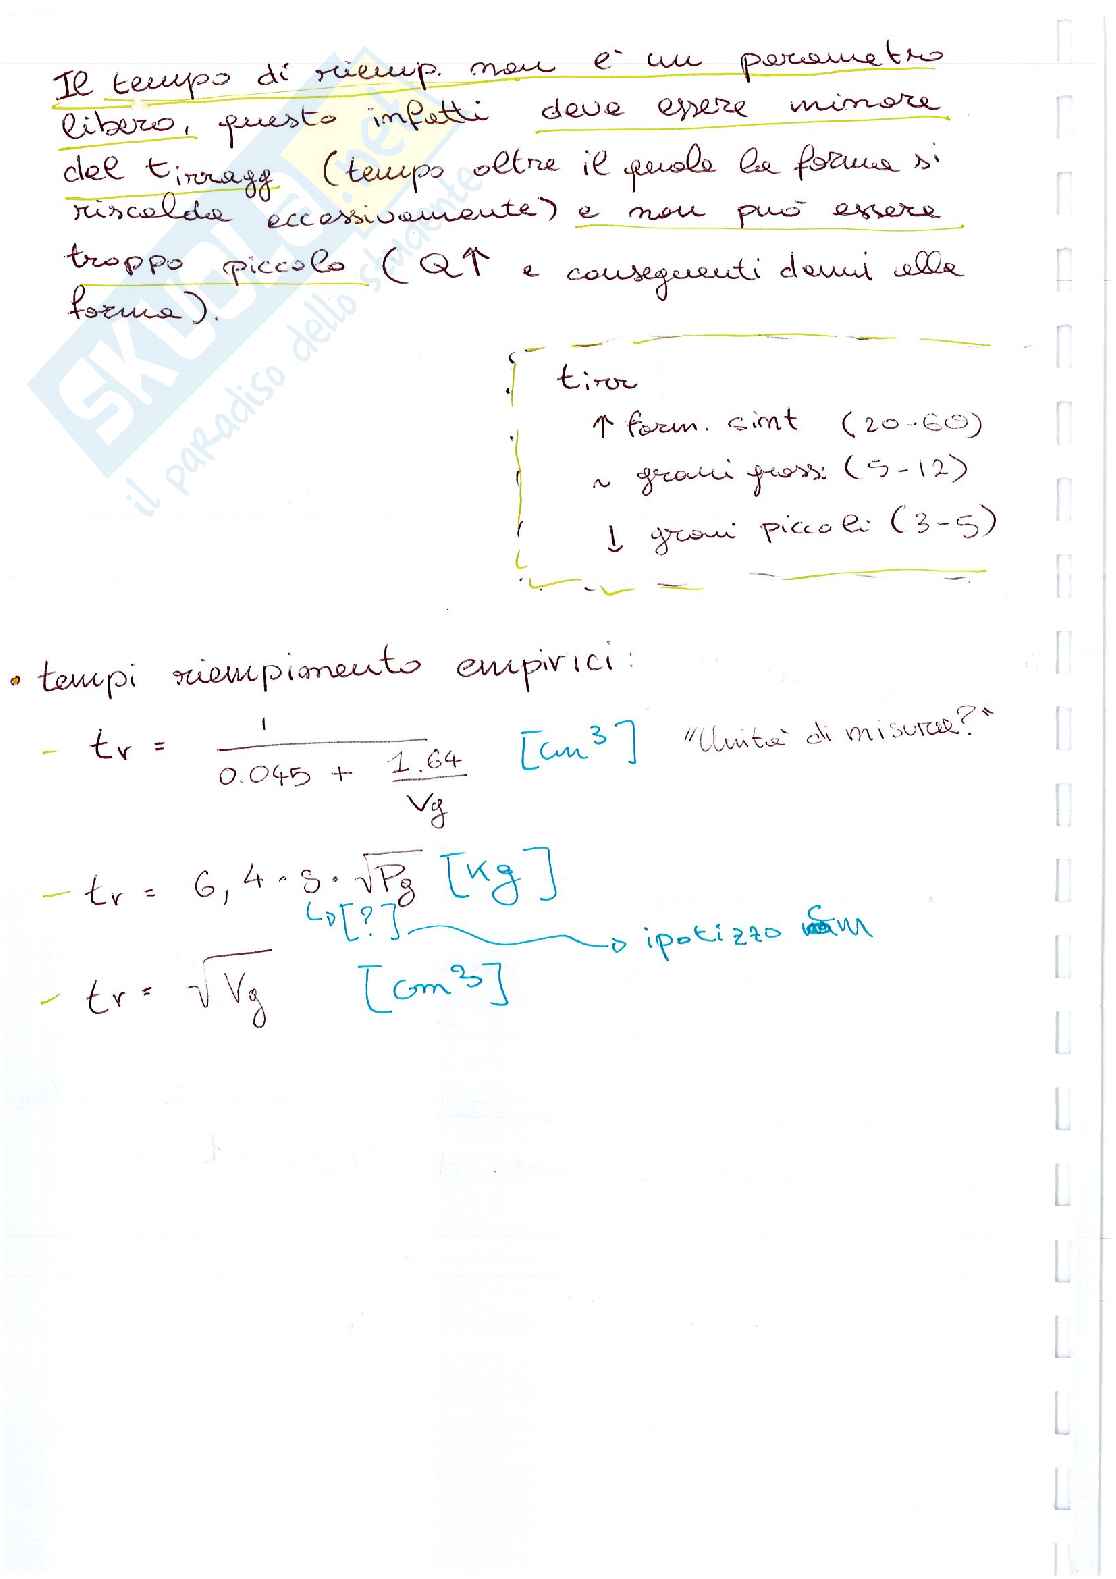 Il tempo di riemp. non è un parametro
libero, questo infatti deve essere minore
del tirragg (tempo oltre il quale la forma si
riscalda eccessivamente) e non può essere
troppo piccolo (Q↑ e conseguenti danni alla
forma).
SKUOLA.net
il paradiso dello studente
tirr
↑ form. sint (20-60)
~ grani grossi (5-12)
↓ grani piccoli (3-5)
• tempi riempimento empirici:
- tr = 1 / (0.045 + 1.64 / Vg) [cm³] "Unità di misura?"
- tr = 6,4 · s · √Pg [kg]
↳ [?] → ipotizzo m
- tr = √Vg [cm³]